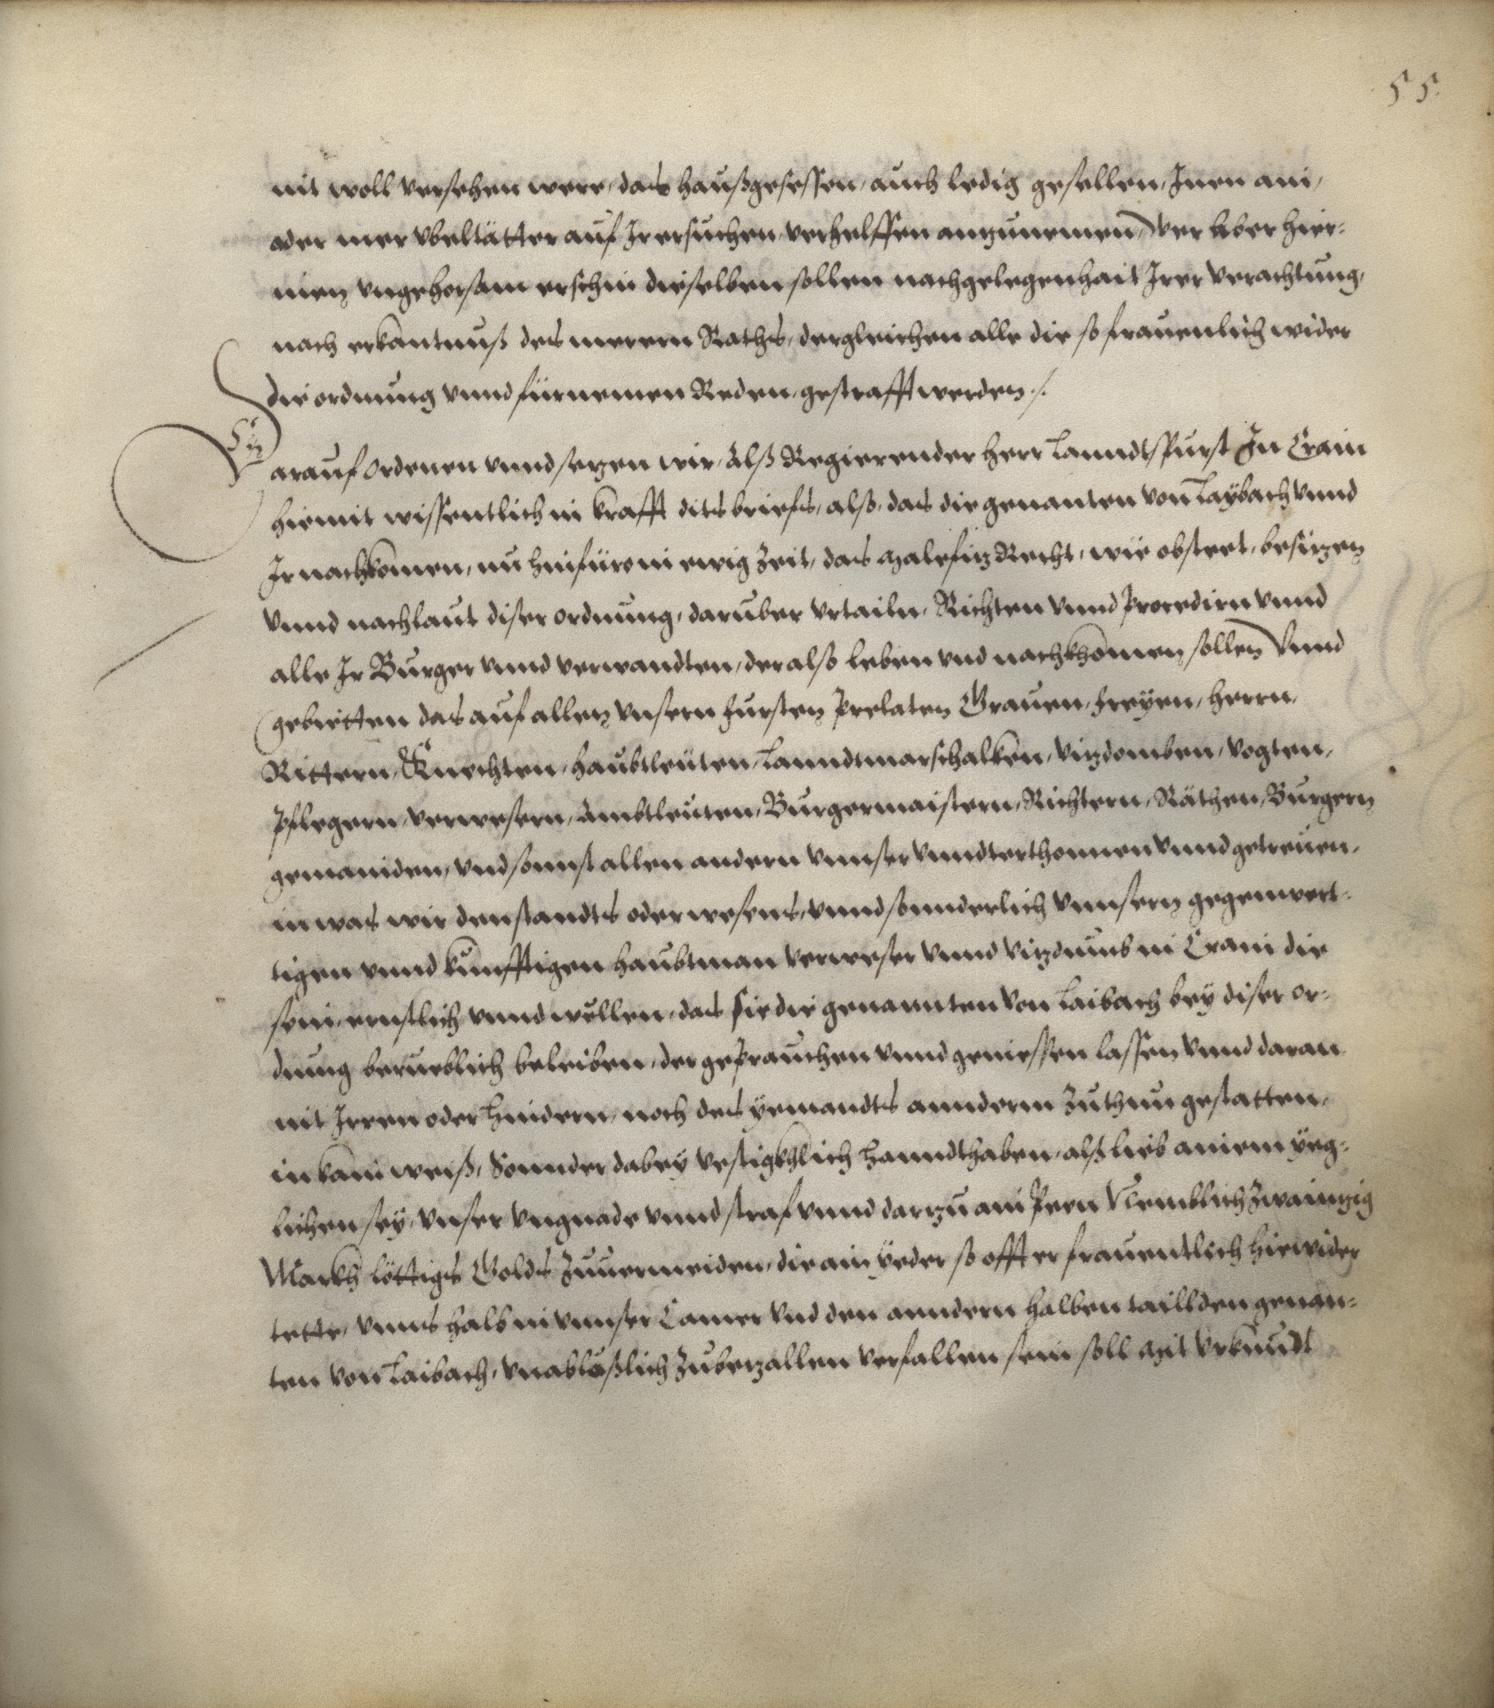 55
nit woll versehen were, das haußgesessen, auch ledig gesellen, Inen ain,
oder mer vbeltätter auf Ir ersuchen, verhelffen anzunemen, Wer aber hier-
inen vngehorsam erschin dieselben sollen nach gelegenhait Irer verachtung,
nach erkantnuß des merern Raths, dergleichen alle die so frauenlich wider
die ordnung vnnd fürnemen Reden, gestrafft werden ./.
Darauf Ordenen vnnd sezen wir, alß Regierender Herr Lanndtsfurst In Crain
hiemit wissentlich in krafft dits briefs, also, das die genanten von Laybach vnnd
Ir nachkomen, nu hinfüro in ewig Zeit, das Malefiz Recht, wie obsteet, besizen
vnnd nach laut diser ordnung, daruber vrtailn, Richten vnnd Procedirn vnnd
alle Ir Burger vnnd verwandten, der also leben vnd nachkhomen sollen Vnnd
gebietten das auf allen vnsern Fursten Prelaten Grauen, Freyen, Herrn,
Rittern, Knechten, Haubtleüten, Lanndtmarschalken, Vizdomben, Vogten,
Pflegern, Verwesern, Ambtleüten, Burgermaistern, Richtern, Räthen, Burgern
gemainden, vnd sonnst allen andern vnnser vnndterthonnen vnnd getreüen,
in was wirden standts oder wesens, vnnd sonnderlich vnnsern gegenwert-
tigen vnnd künfftigen haubtman verweser vnnd vizdumb in Crain die
sein, ernstlich vnnd wellen, das Sie die genannten von Laibach bey diser or-
dnung berueblich beleiben, der geprauchen vnnd geniessen lassen vnnd daran
nit Irren oder hindern, noch des yemandts annderm Zuthun gestatten,
in kain weiß, Sonnder dabey vestigkhlich hanndthaben, alß lieb ainem yeg-
lichen sey, vnser vngnade vnnd straf vnnd darzu ain Peen Nemblich Zwainzig
Markh löttigs Golds Zuuermeiden, die ain yeder so offt er frauentlich hiewider
tette, vnns halb in vnnser Camer vnd den anndern halben taill den genan-
ten von Laibach, vnabläßlich Zubezallen verfallen sein soll Mit vrkundt